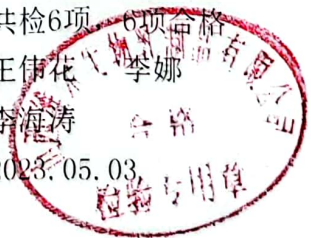 共检6项，6项合格
王伟花 李娜
李海涛
2023.05.03
有限公司
合格
检验专用章